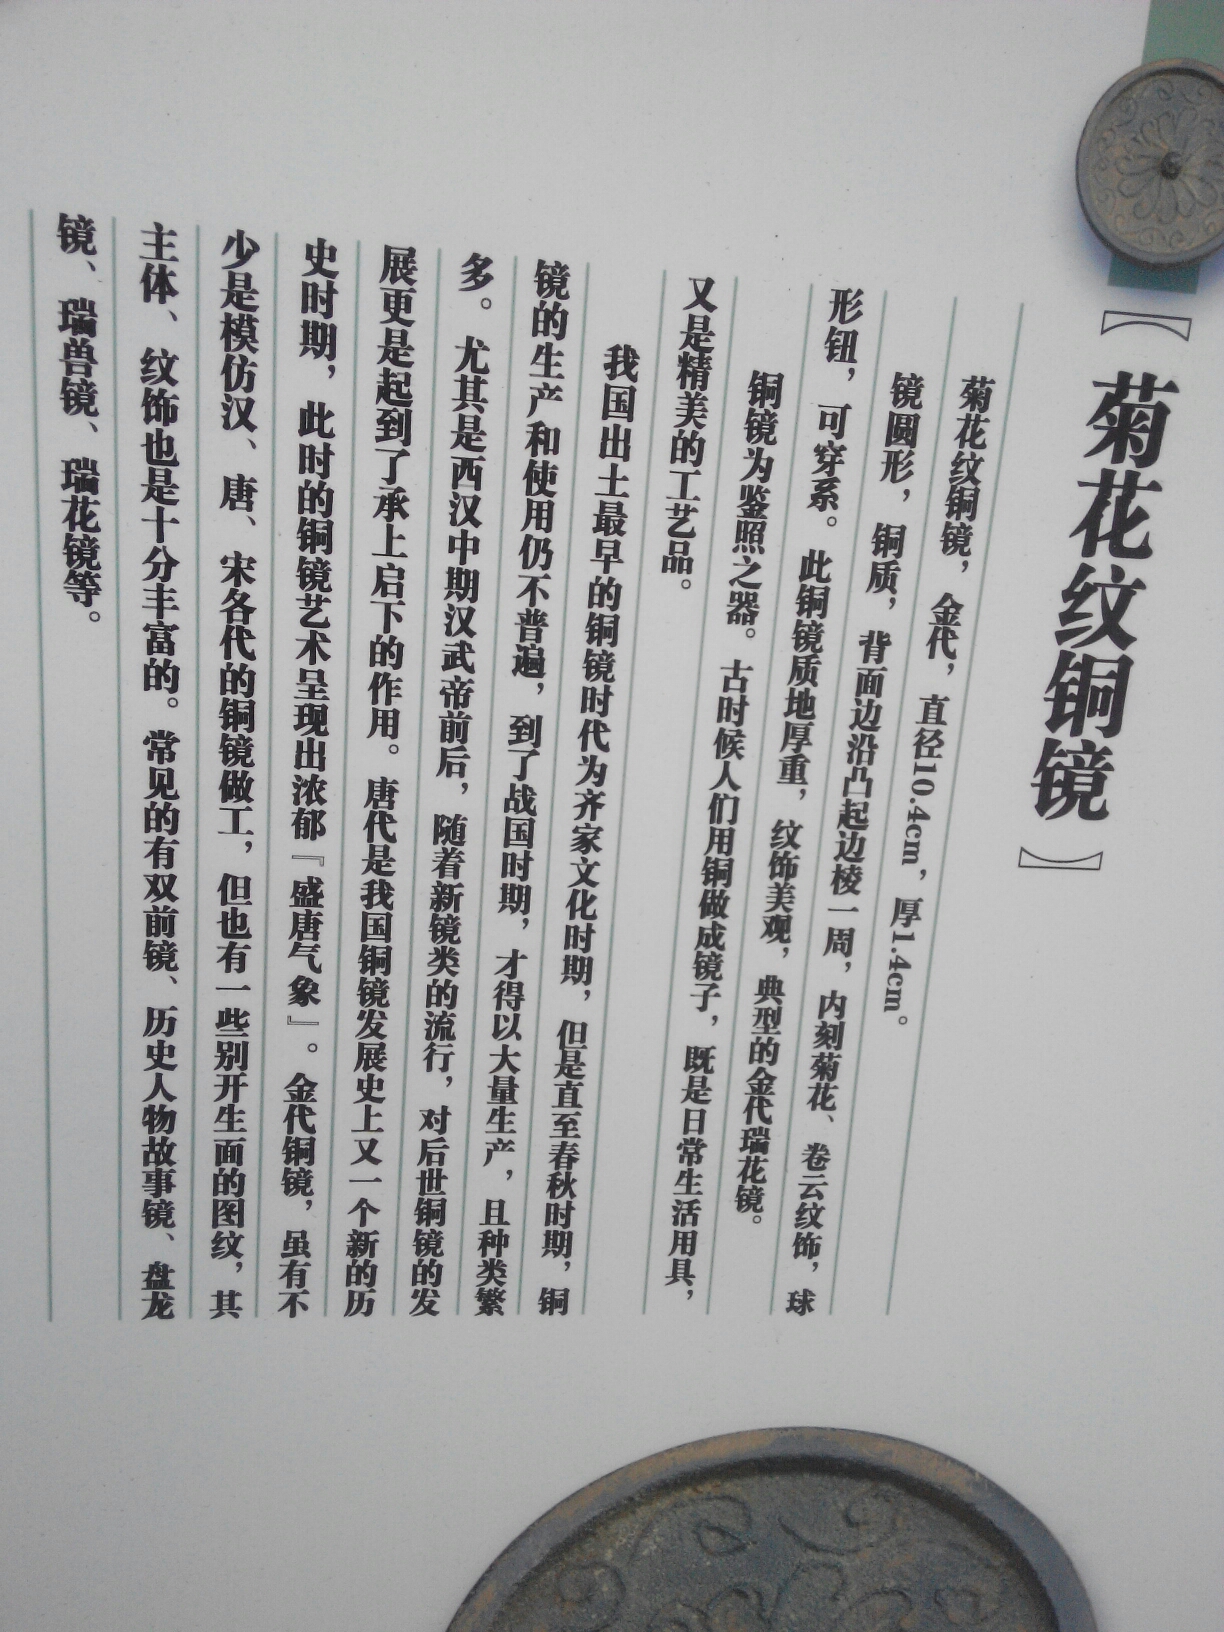 【菊花纹铜镜】
菊花纹铜镜，金代，直径10.4cm，厚1.4cm。
镜圆形，铜质，背面边沿凸起边棱一周，内刻菊花、卷云纹饰，球
形钮，可穿系。此铜镜质地厚重，纹饰美观，典型的金代瑞花镜。
铜镜为鉴照之器。古时候人们用铜做成镜子，既是日常生活用具，
又是精美的工艺品。
我国出土最早的铜镜时代为齐家文化时期，但是直至春秋时期，铜
镜的生产和使用仍不普遍，到了战国时期，才得以大量生产，且种类繁
多。尤其是西汉中期汉武帝前后，随着新镜类的流行，对后世铜镜的发
展更是起到了承上启下的作用。唐代是我国铜镜发展史上又一个新的历
史时期，此时的铜镜艺术呈现出浓郁『盛唐气象』。金代铜镜，虽有不
少是模仿汉、唐、宋各代的铜镜做工，但也有一些别开生面的图纹，其
主体、纹饰也是十分丰富的。常见的有双前镜、历史人物故事镜、盘龙
镜、瑞兽镜、瑞花镜等。